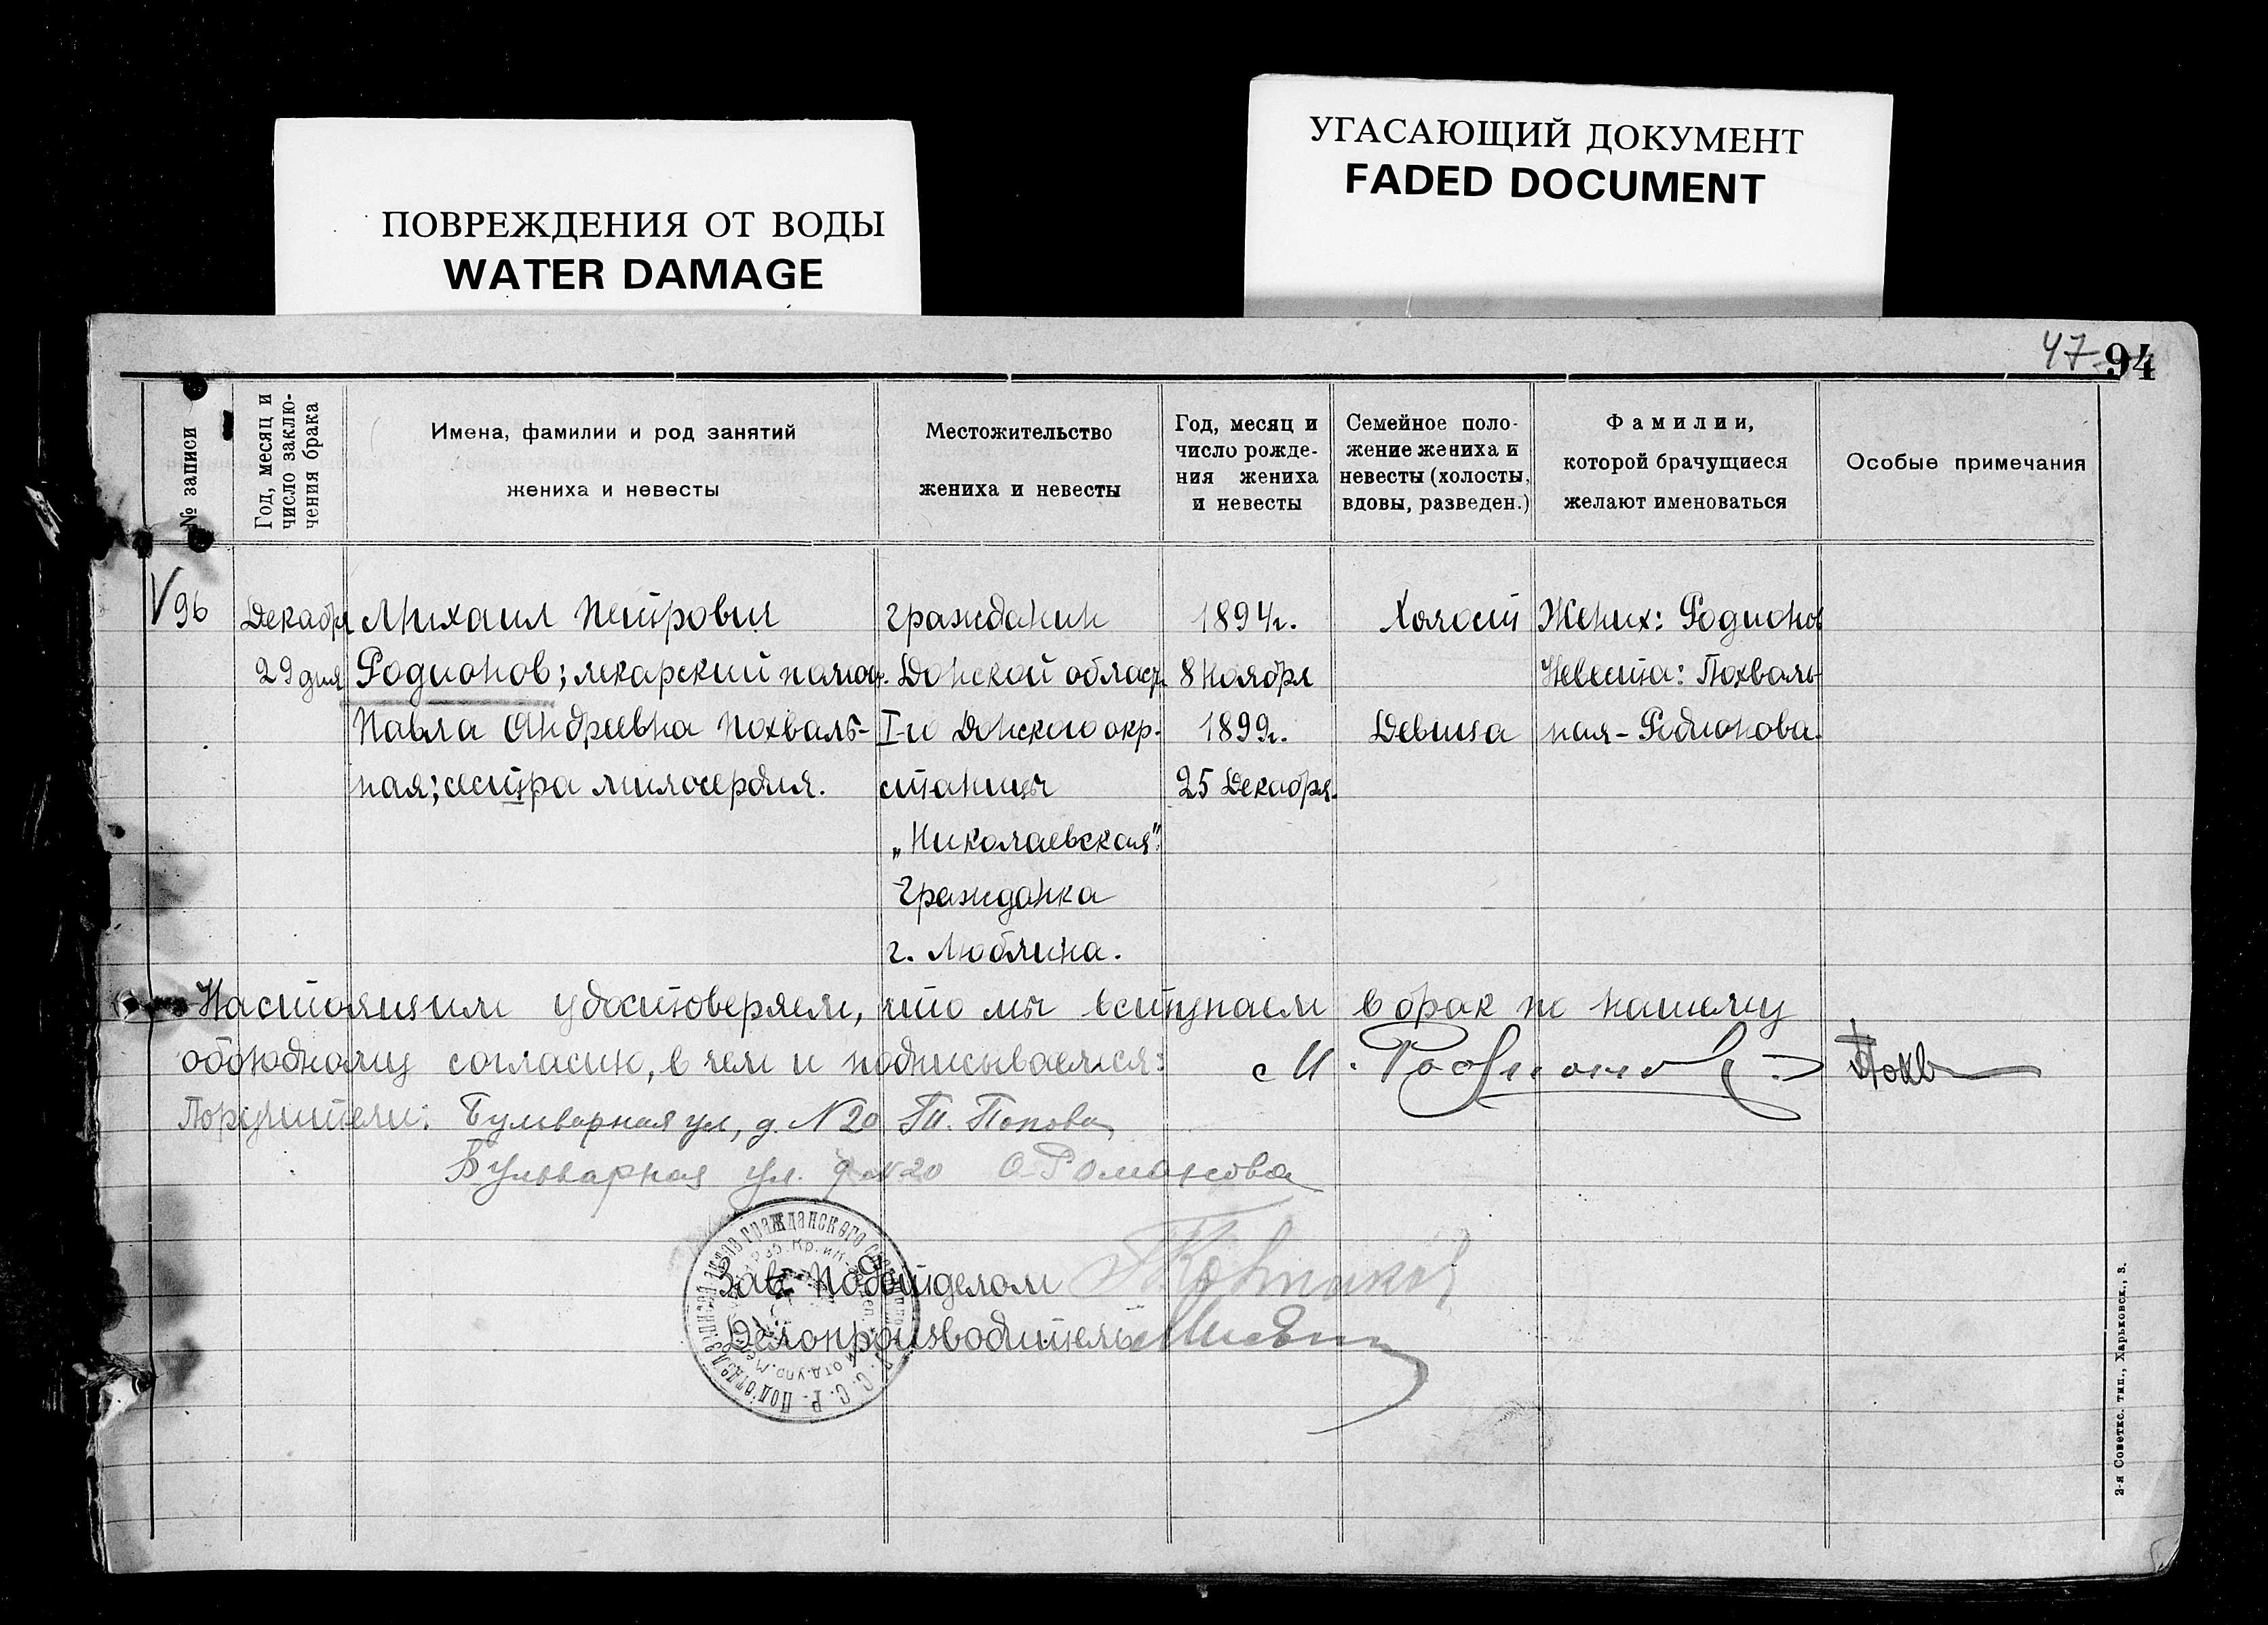 ПОВРЕЖДЕНИЯ ОТ ВОДЫ
WATER DAMAGE
УГАСАЮЩИЙ ДОКУМЕНТ
FADED DOCUMENT
47 94
№ записи
Год, месяц и
число заклю-
чения брака
Имена, фамилии и род занятий
жениха и невесты
Местожительство
жениха и невесты
Год, месяц и
число рожде-
ния жениха
и невесты
Семейное поло-
жение жениха и
невесты (холосты,
вдовы, разведен.)
Фамилии,
которой брачущиеся
желают именоваться
Особые примечания
96
Декабря
29 дня
Михаил Петрович
Родионов; лекарский помощ.
Павла Андреевна Похваль-
ная; сестра милосердия.
гражданин
Донской област.
I-го Донского окр.
станицы
„Николаевская".
Гражданка
г. Люблина.
1894г.
8 Ноября
1899г.
25 Декабря.
Холост
Девица
Жених: Родионов
Невеста: Похваль-
ная-Родионова.
Настоящим удостоверяем, что мы вступаем в брак по нашему
обоюдному согласию, в чем и подписываемся: М. Родионов Похв
Поручители: Бульварная ул, д. N 20 Попова
Бульварная ул. д N 20 О Романова
Зав. Подотделом
Делопроизводитель
гражданского
С. С. Р. Подотдел
2-я Советск. тип., Харьковск., 3.